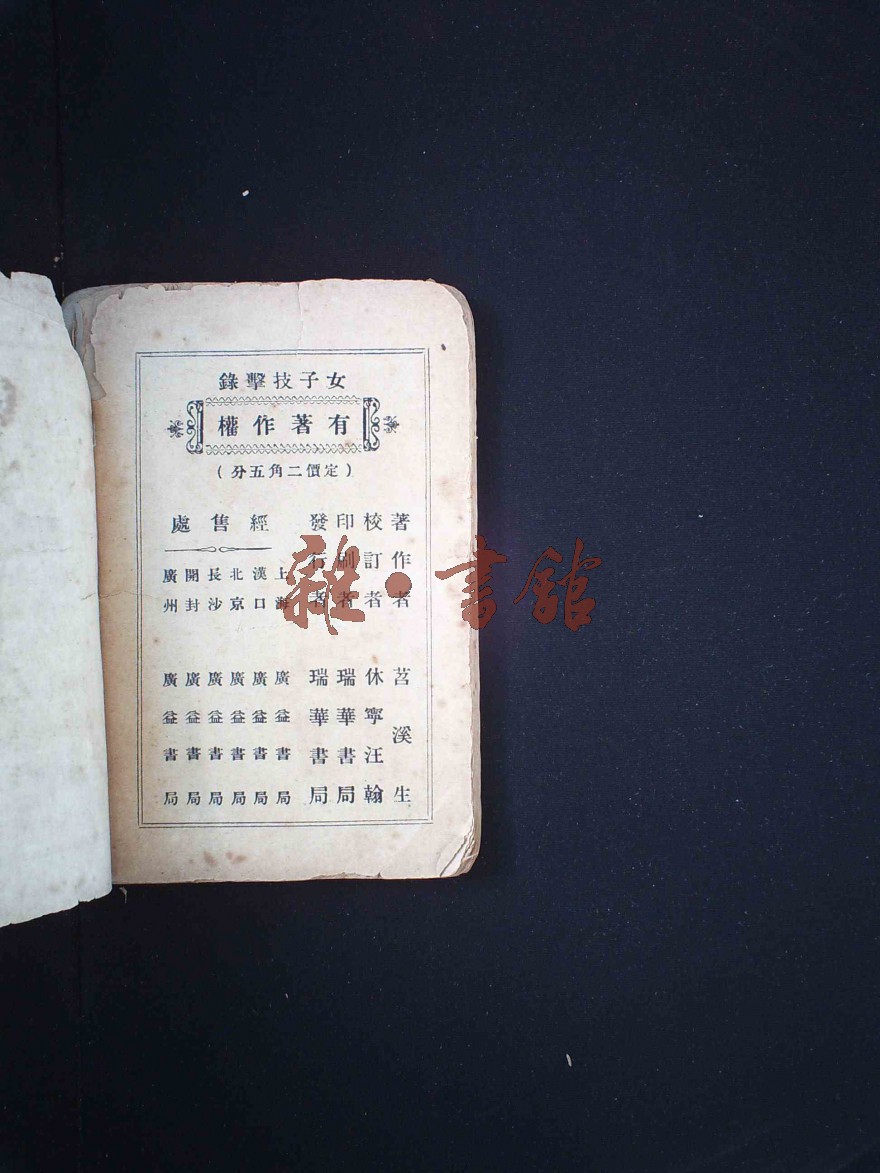 女子技擊錄
有著作權
（定價二角五分）
著作者 苕溪生
校訂者 休寧汪翰
印刷者 瑞華書局
發行者 瑞華書局
經售處
上海 廣益書局
漢口 廣益書局
北京 廣益書局
長沙 廣益書局
開封 廣益書局
廣州 廣益書局
雜·書館